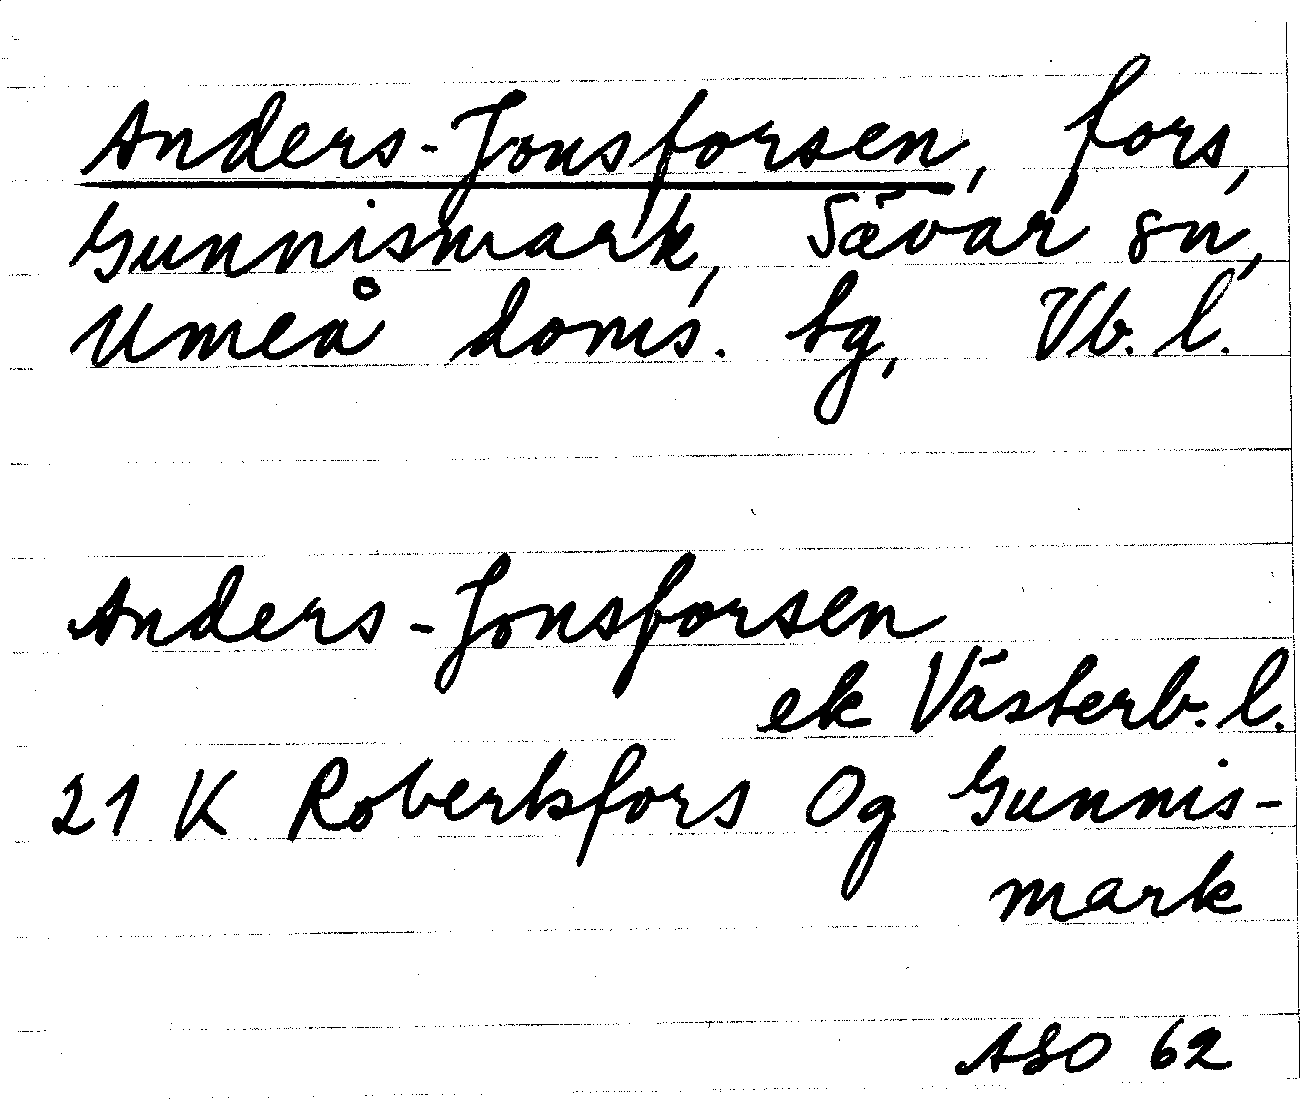 Anders-Jonsforsen, fors,
Gunnismark, Sävar sn,
Umeå doms. tg, Vb. l.
Anders-Jonsforsen
ek Västerb. l.
21 K Robertsfors Og Gunnis-
mark
ASO 62